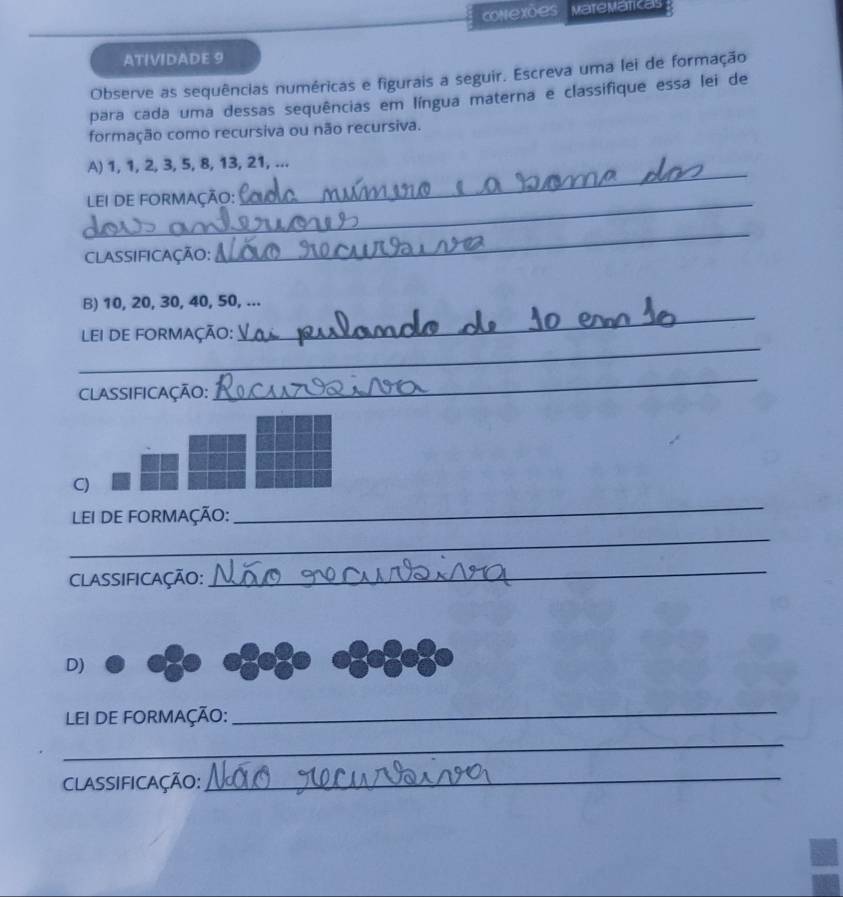 CONEXÕES MATEMÁTICAS
ATIVIDADE 9
Observe as sequências numéricas e figurais a seguir. Escreva uma lei de formação
para cada uma dessas sequências em língua materna e classifique essa lei de
formação como recursiva ou não recursiva.
A) 1, 1, 2, 3, 5, 8, 13, 21, ...
LEI DE FORMAÇÃO: Cada número é a soma dos
dois anteriores
CLASSIFICAÇÃO: Não recursiva
B) 10, 20, 30, 40, 50, ...
LEI DE FORMAÇÃO: Vai pulando de 10 em 10
CLASSIFICAÇÃO: Recursiva
C)
LEI DE FORMAÇÃO:
CLASSIFICAÇÃO: Não recursiva
D)
LEI DE FORMAÇÃO:
CLASSIFICAÇÃO: Não recursiva